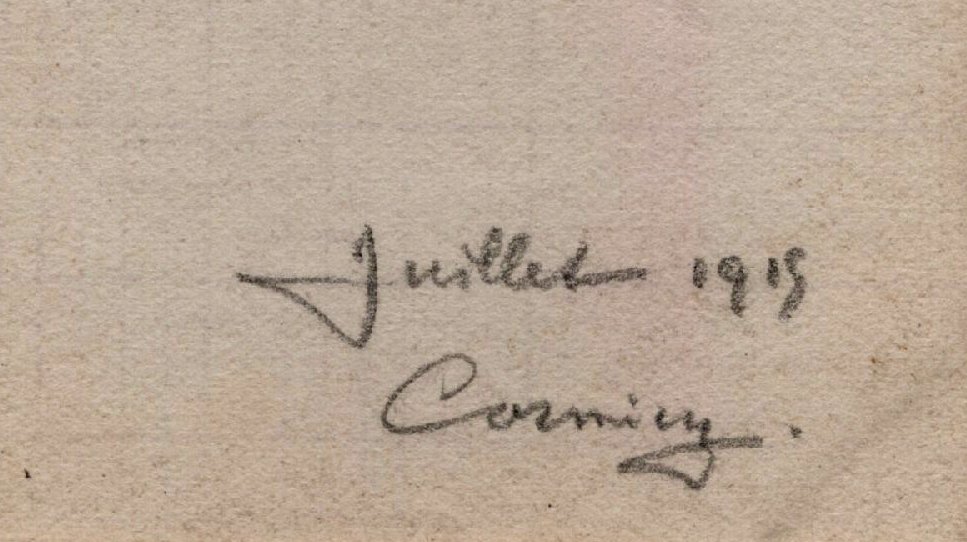 Juillet 1915
Cormicy.